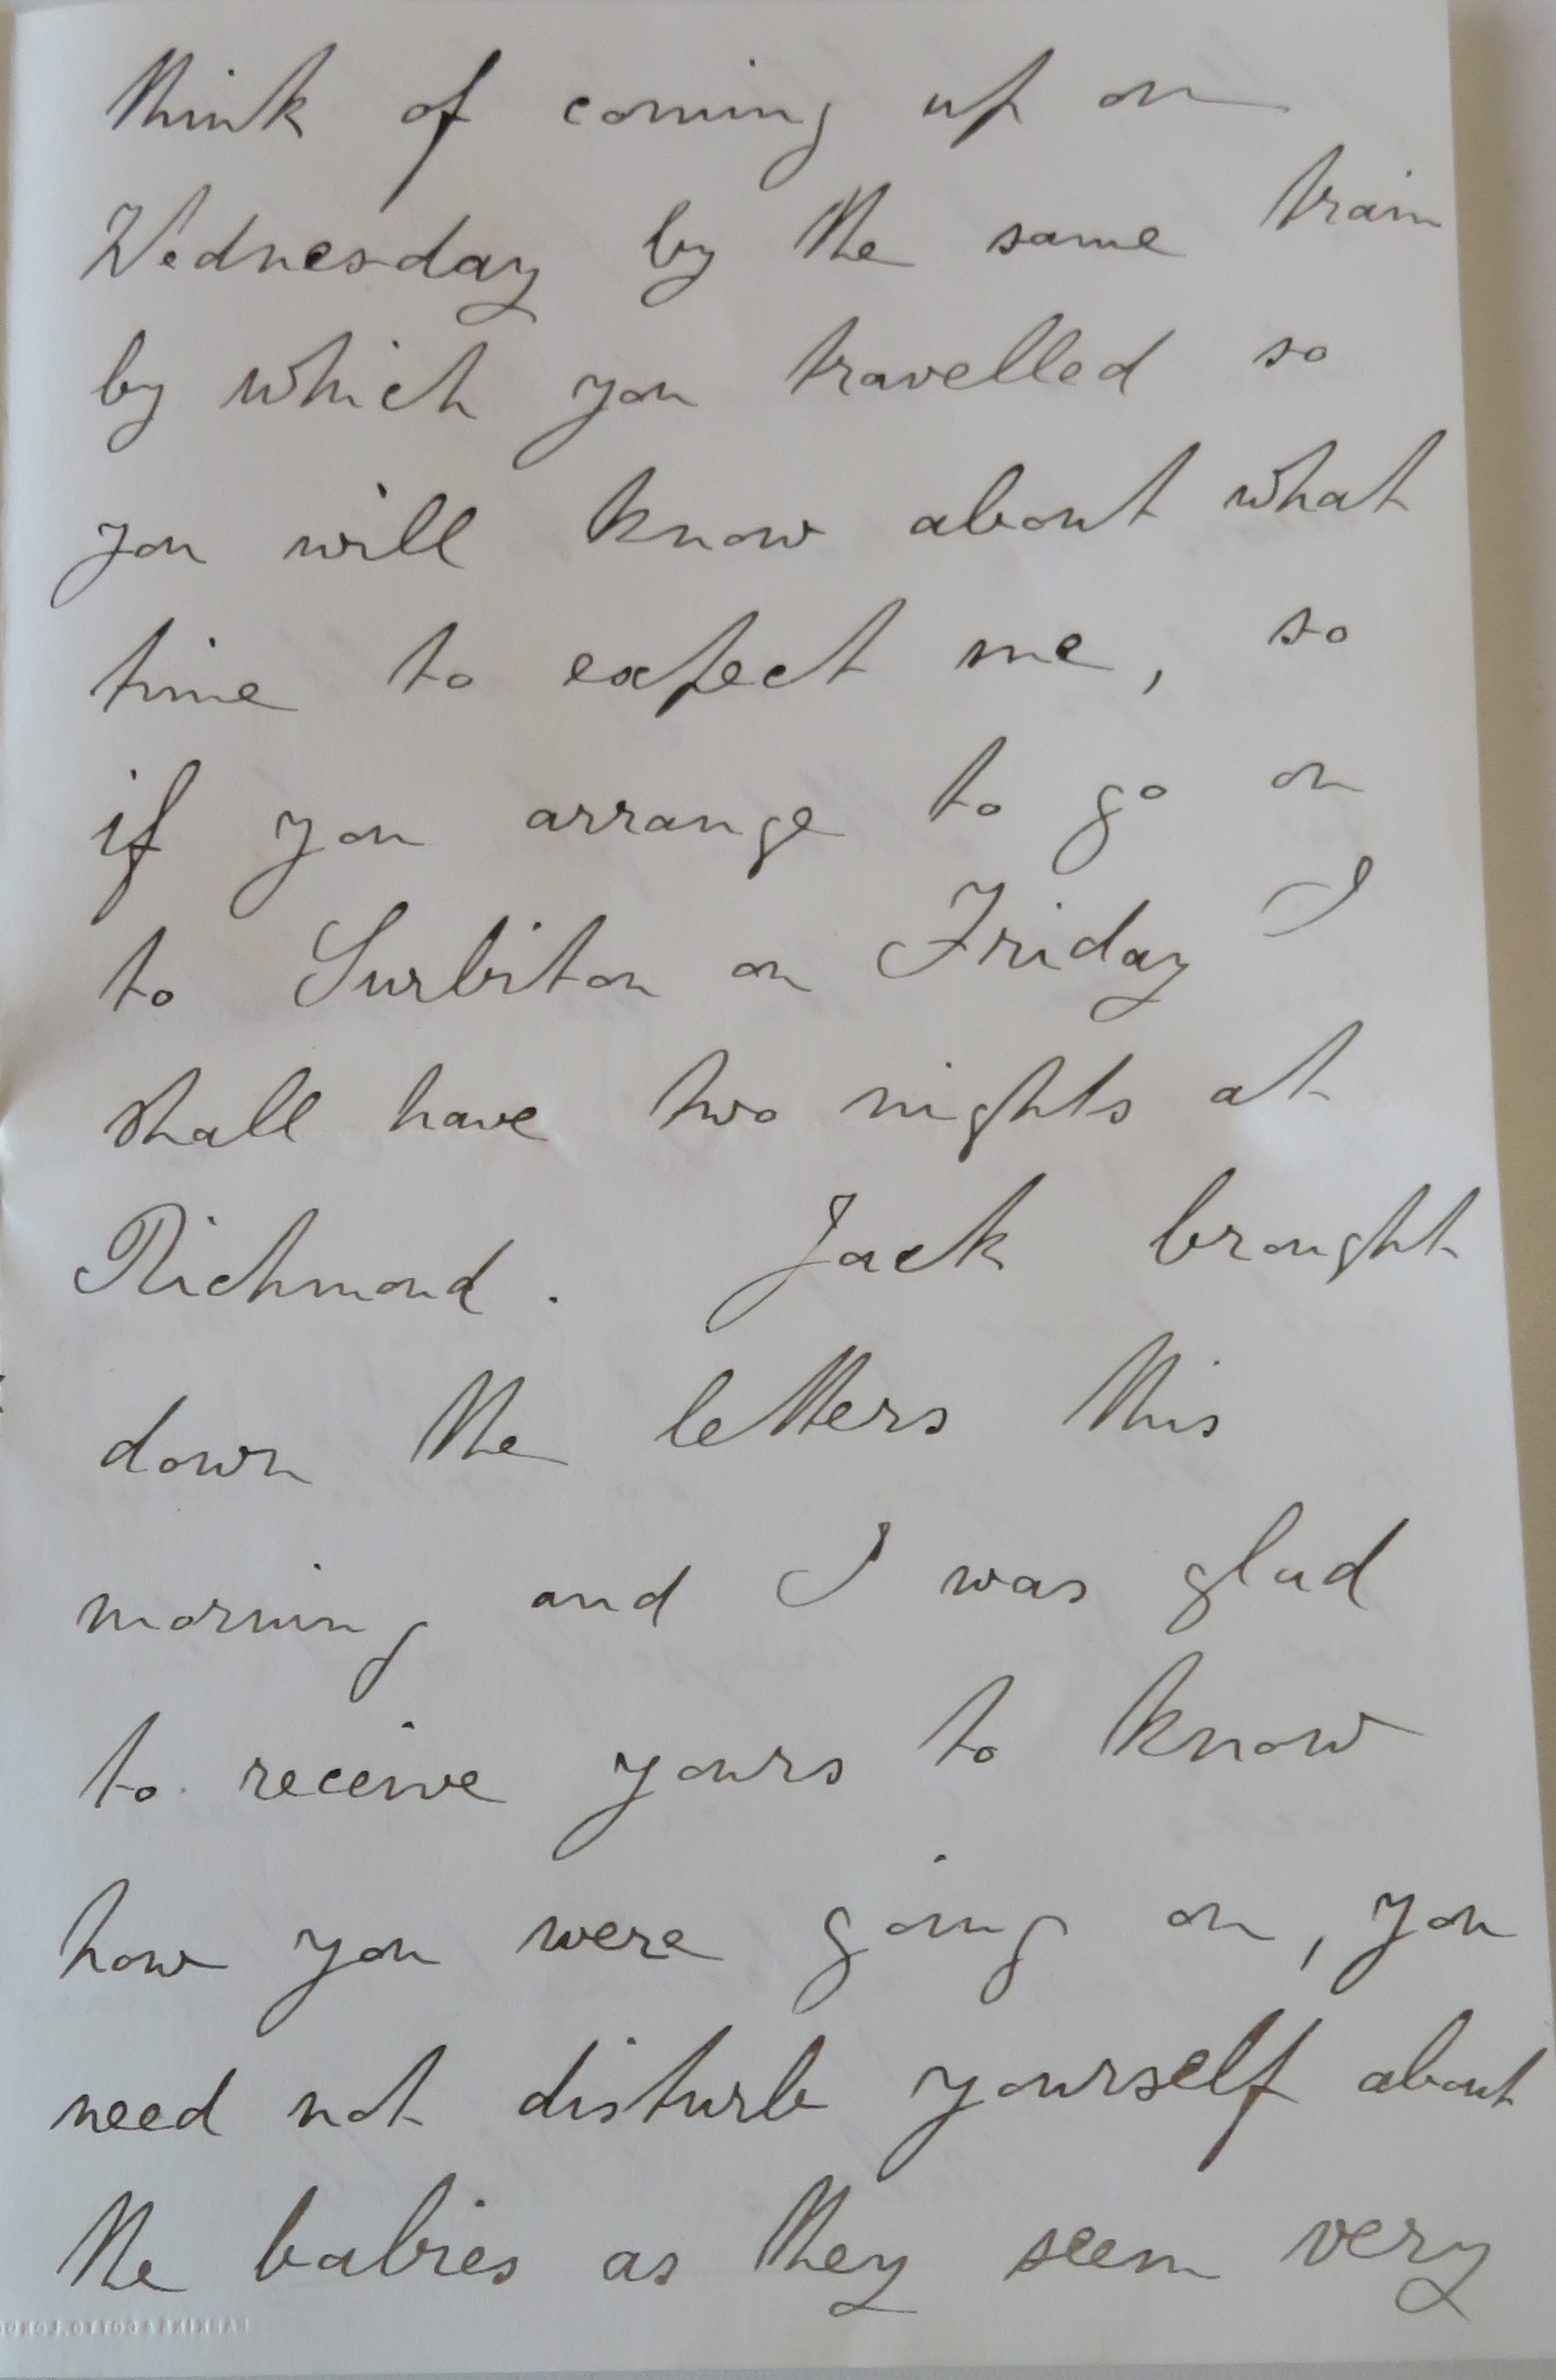 think of coming up on
Wednesday by the same train
by which you travelled so
you will know about what
time to expect me, so
if you arrange to go on
to Surbiton on Friday I
shall have two nights at
Richmond. Jack brought
down the letters this
morning and I was glad
to receive yours to know
how you were going on, you
need not disturb yourself about
the babies as they seem very